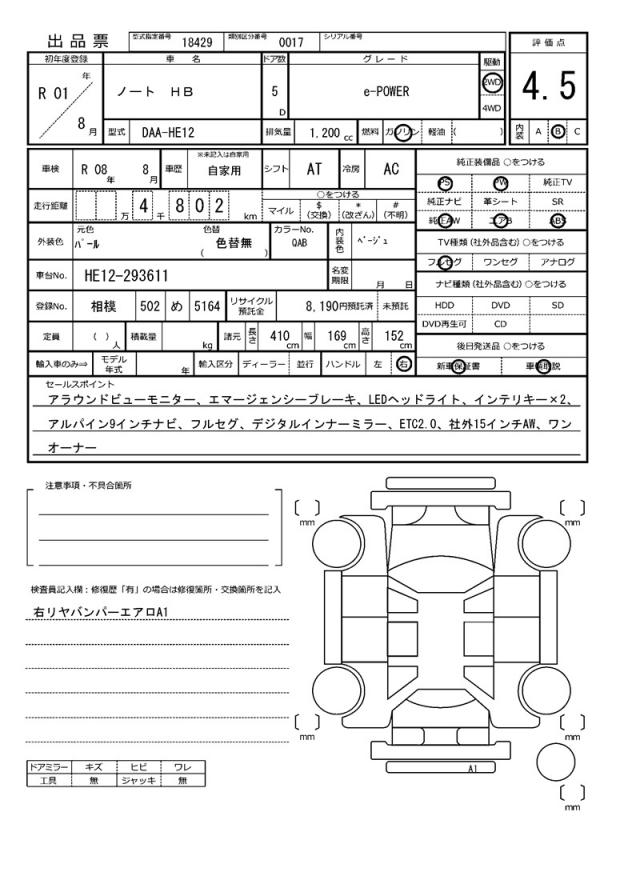 出品票 型式指定番号 18429 類別区分番号 0017 シリアル番号
評価点
初年度登録 車名 ドア数 グレード 駆動
R 01 年 ノート HB 5 D e-POWER 2WD 4.5
4WD
8 月 型式 DAA-HE12 排気量 1.200 cc 燃料 ガソリン 軽油 ( ) 内装 A B C
車検 R 08 年 8 月 車歴 ※未記入は自家用 自家用 シフト AT 冷房 AC
純正装備品 ○をつける
PS PW 純正TV
純正ナビ 革シート SR
純正AW エアB ABS
走行距離 万 4 千 8 0 2 km ○をつける
マイル $ (交換) * (改ざん) # (不明)
TV種類 (社外品含む) ○をつける
フルセグ ワンセグ アナログ
外装色 元色 パール 色替 ( 色替無 ) カラーNo. QAB 内装色 ベージュ
ナビ種類 (社外品含む) ○をつける
HDD DVD SD
DVD再生可 CD
車台No. HE12-293611 名変期限 月 日
登録No. 相模 502 め 5164 リサイクル預託金 8,190円預託済 未預託
定員 ( ) 人 積載量 kg 諸元 長さ 410 cm 幅 169 cm 高さ 152 cm
後日発送品 ○をつける
新車保証書 車輌取説
輸入車のみ⇒ モデル年式 年 輸入区分 ディーラー 並行 ハンドル 左 右
セールスポイント
アラウンドビューモニター、エマージェンシーブレーキ、LEDヘッドライト、インテリキー×2、
アルパイン9インチナビ、フルセグ、デジタルインナーミラー、ETC2.0、社外15インチAW、ワン
オーナー
注意事項・不具合箇所
mm mm
検査員記入欄：修復歴「有」の場合は修復箇所・交換箇所を記入
右リヤバンパーエアロA1
mm mm
ドアミラー キズ ヒビ ワレ
工具 無 ジャッキ 無
A1
mm